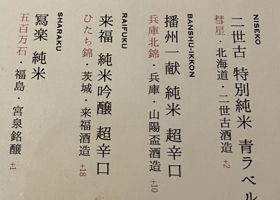 NISEKO
二世古 特別純米 青ラベル
彗星・北海道・二世古酒造 +2
BANSHU-IKKON
播州一献 純米 超辛口
兵庫北錦・兵庫・山陽盃酒造 +10
RAIFUKU
来福 純米吟醸 超辛口
ひたち錦・茨城・来福酒造 +18
SHARAKU
寫楽 純米
五百万石・福島・宮泉銘醸 +1